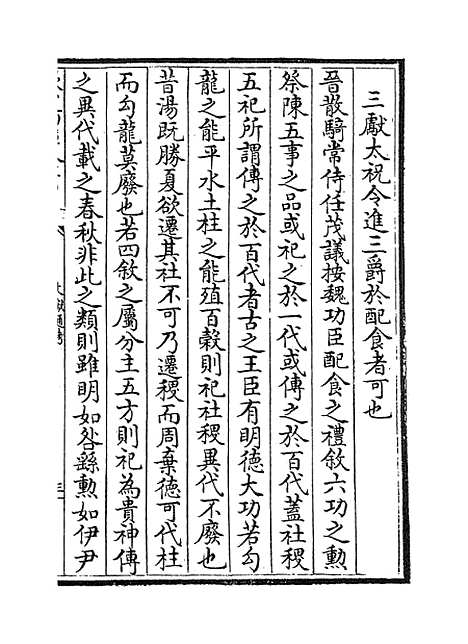 三獻太祝令進三爵於配食者可也
晉散騎常侍任茂議按魏功臣配食之禮敘六功之勲
祭陳五事之品或祀之於一代或傳之於百代蓋社稷
五祀所謂傳之於百代者古之王臣有明德大功若勾
龍之能平水土柱之能殖百榖則祀社稷異代不廢也
昔湯既勝夏欲遷其社不可乃遷稷而周棄德可代柱
而勾龍莫廢也若四敘之屬分主五方則祀為貴神傳
之異代載之春秋非此之類則雖明如咎繇勲如伊尹
文獻通考